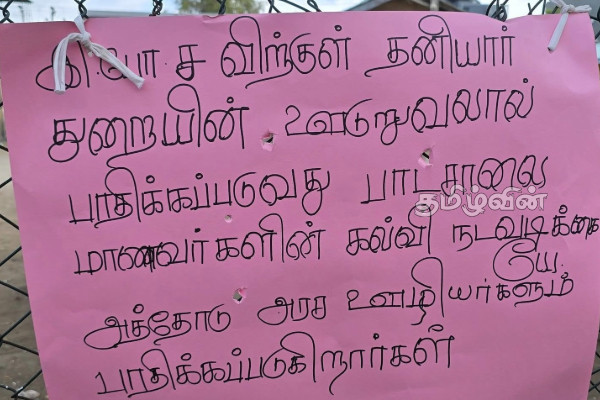 இ.போ.ச விற்குள் தனியார்
துறையின் ஊடுறுவலால்
பாதிக்கப்படுவது பாடசாலை
தமிழ்வின்
மாணவர்களின் கல்வி நடவடிக்கை
யே.
அத்தோடு அரச ஊழியர்களும்
பாதிக்கப்படுகிறார்கள்